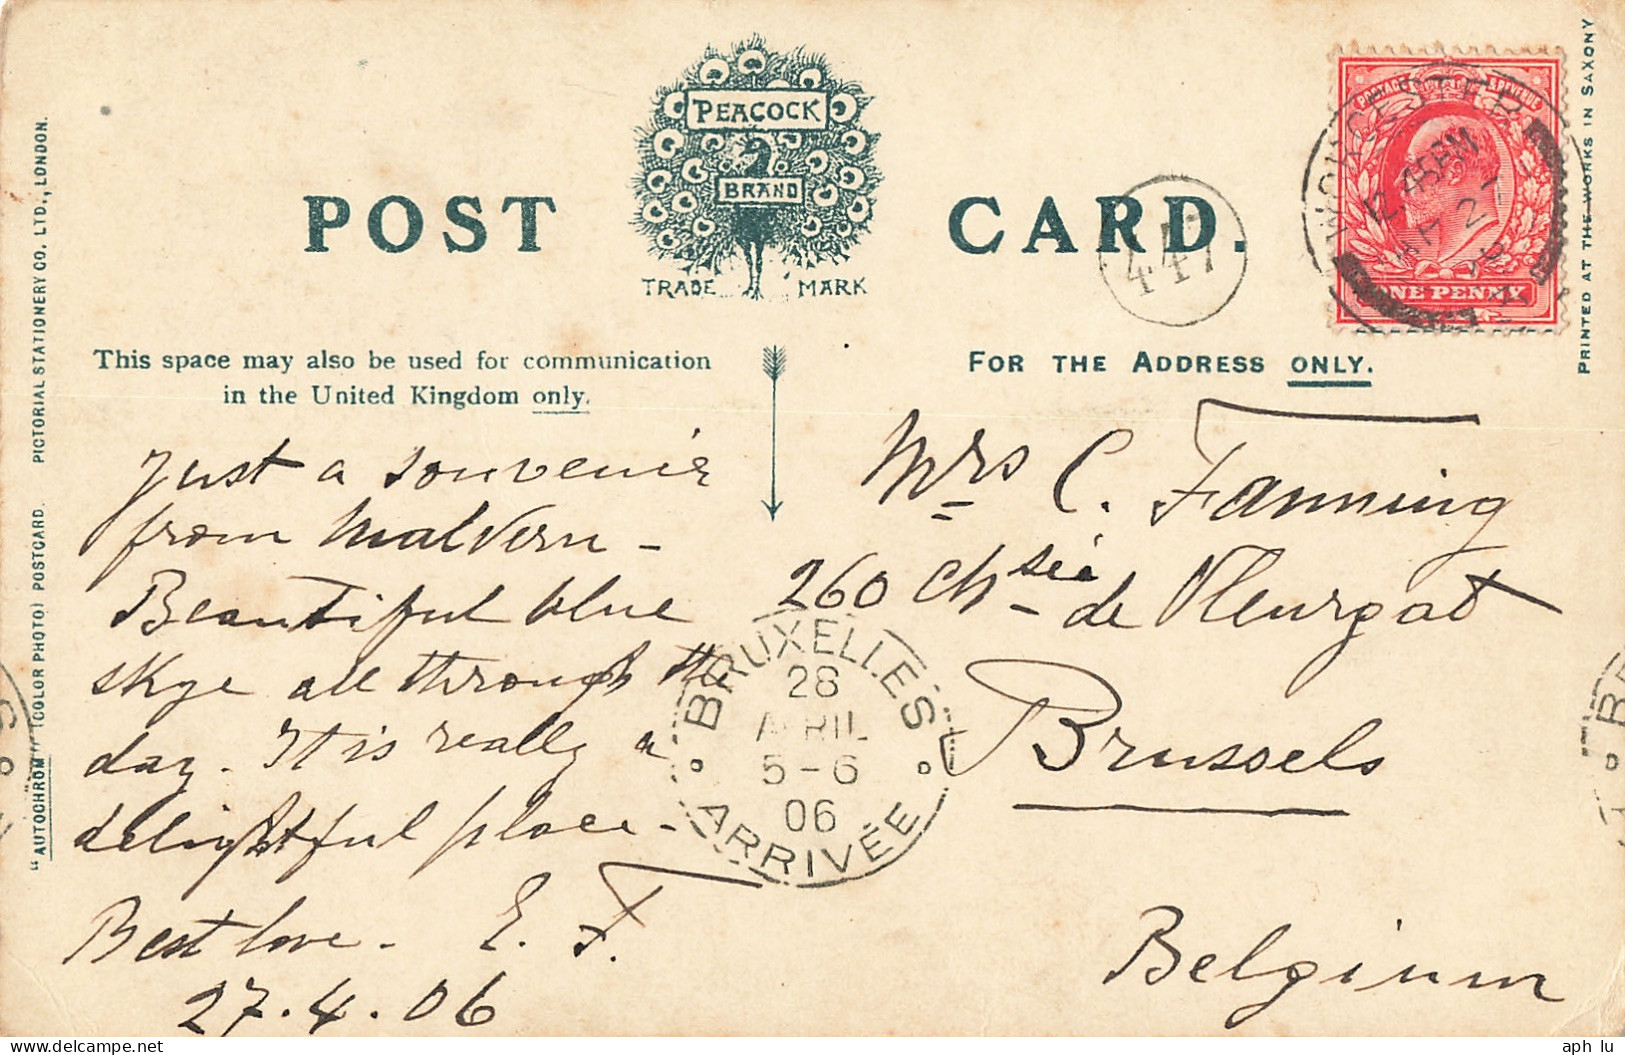 POST CARD.
PEACOCK
BRAND
TRADE MARK
This space may also be used for communication
in the United Kingdom only.
FOR THE ADDRESS ONLY.
"AUTOCHROM" (COLOR PHOTO) POSTCARD. PICTORIAL STATIONERY CO. LTD., LONDON.
PRINTED AT THE WORKS IN SAXONY
447
WORCESTER
12.45PM
ONE PENNY
Just a souvenir
from Malvern -
Beautiful blue
skye all through the
day. It is really a
delightful place -
Best love - E. F.
27.4.06
Mrs C. Fanning
260 Chsée de Vleurgat
Brussels
Belgium
BRUXELLES
28
AVRIL
5-6
06
ARRIVÉE
aph lu